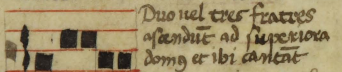 Duo uel tres fratres
ascendūt ad superiora
domꝰ et ibi cantāt